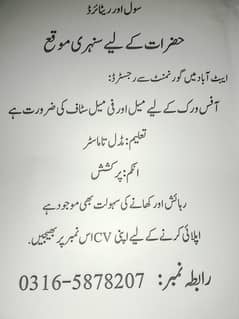 سول اور ریٹائرڈ
حضرات کے لیے سنہری موقع
ایبٹ آباد میں گورنمنٹ سے رجسٹرڈ:
آفس ورک کے لیے میل اور فی میل سٹاف کی ضرورت ہے
تعلیم: مڈل تا ماسٹر
انکم: پرکشش
رہائش اور کھانے کی سہولت بھی موجود ہے
اپلائی کرنے کے لیے اپنی CV اس نمبر پر بھیجیں۔
رابطہ نمبر: 0316-5878207